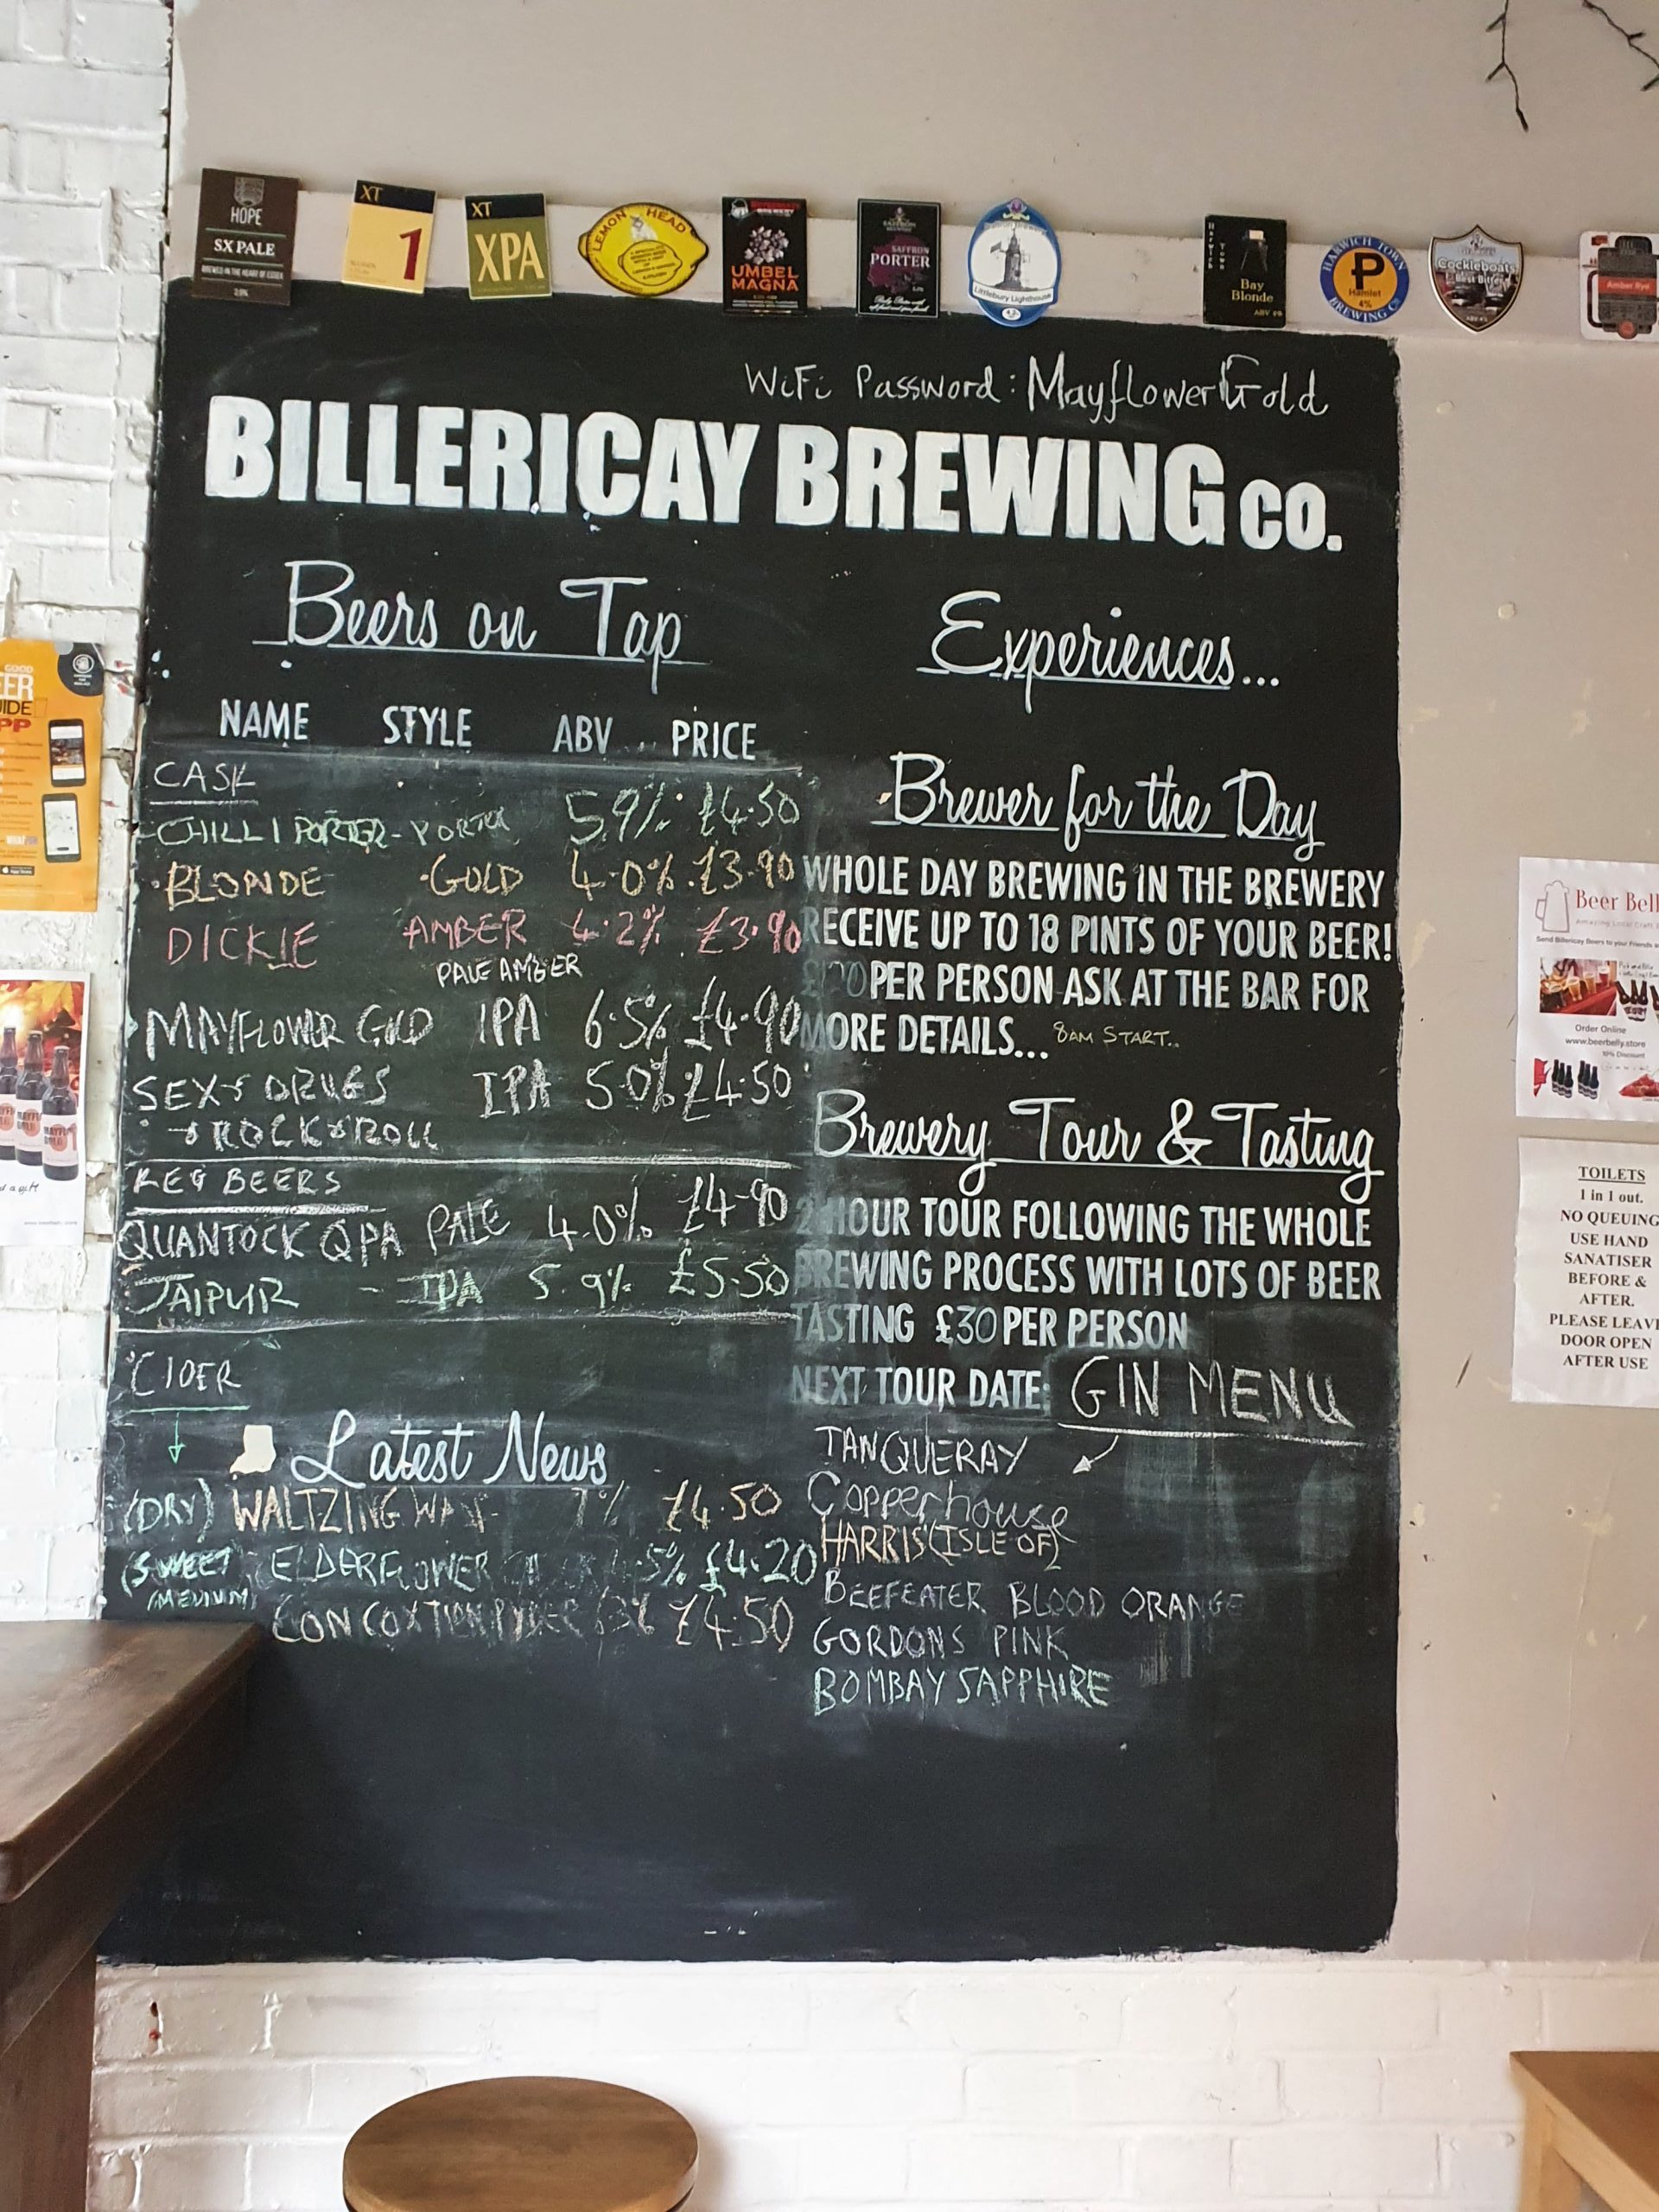 HOPE
SX PALE
BREWED IN THE HEART OF ESSEX
XT
1
XT
XPA
LEMON HEAD
UMBEL
MAGNA
SAFFRON
PORTER
Littlebury Lighthouse
Harwich
Town
Bay
Blonde
HARWICH TOWN
P
Hamlet
4%
BREWING Co
Cockleboats
Best Bitter
Amber Rye
WiFi Password: MayflowerGold
BILLERICAY BREWING CO.
Beers on Tap
NAME STYLE ABV PRICE
CASK
CHILLI PORTER - PORTER 5.9% £4.50
BLONDE GOLD 4.0% £3.90
DICKIE AMBER 4.2% £3.90
PALE AMBER
MAYFLOWER GOLD IPA 6.5% £4.90
SEX & DRUGS IPA 5.0% £4.50
& ROCK & ROLL
KEG BEERS
QUANTOCK QPA PALE 4.0% £4.90
JAIPUR - IPA 5.9% £5.50
CIDER
Latest News
(DRY) WALTZING 7% £4.50
(SWEET ELDERFLOWER 5% £4.20
(MEDIUM)
CONCOXTION £4.50
Experiences...
Brewer for the Day
WHOLE DAY BREWING IN THE BREWERY
RECEIVE UP TO 18 PINTS OF YOUR BEER!
PER PERSON ASK AT THE BAR FOR
MORE DETAILS... 8AM START..
Brewery Tour & Tasting
2 HOUR TOUR FOLLOWING THE WHOLE
BREWING PROCESS WITH LOTS OF BEER
TASTING £30 PER PERSON
NEXT TOUR DATE: GIN MENU
TANQUERAY
Copperhouse
HARRIS (ISLE OF)
BEEFEATER BLOOD ORANGE
GORDONS PINK
BOMBAY SAPPHIRE
GOOD
Beer Bell
Send Billericay Beers to your friends
Order Online
www.beerbelly.store
10% Discount
TOILETS
1 in 1 out.
NO QUEUING
USE HAND
SANATISER
BEFORE &
AFTER.
PLEASE LEAV
DOOR OPEN
AFTER USE